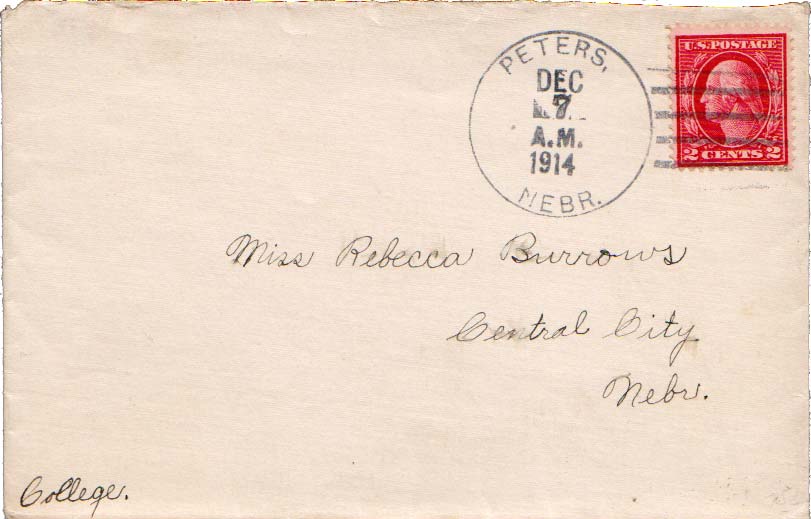 PETERS,
DEC
7
A.M.
1914
NEBR.
U.S. POSTAGE
2 CENTS 2
Miss Rebecca Burrows
Central City
Nebr.
College.